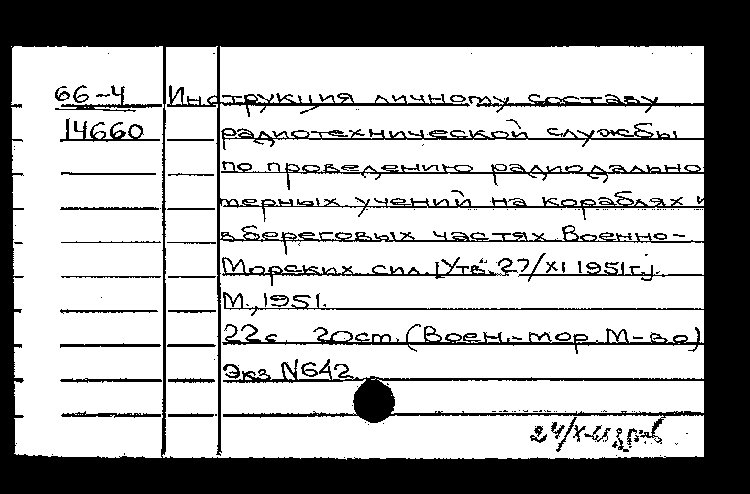 66-4 Инструкция личному составу
14660 радиотехнической службы
по проведению радиодально
терных учений на кораблях и
в береговых частях Военно-
Морских сил. [Утв. 27/XI 1951 г.].
М., 1951.
22 с. 20 см. (Воен.-мор. М-во)
Экз N642
24/X-